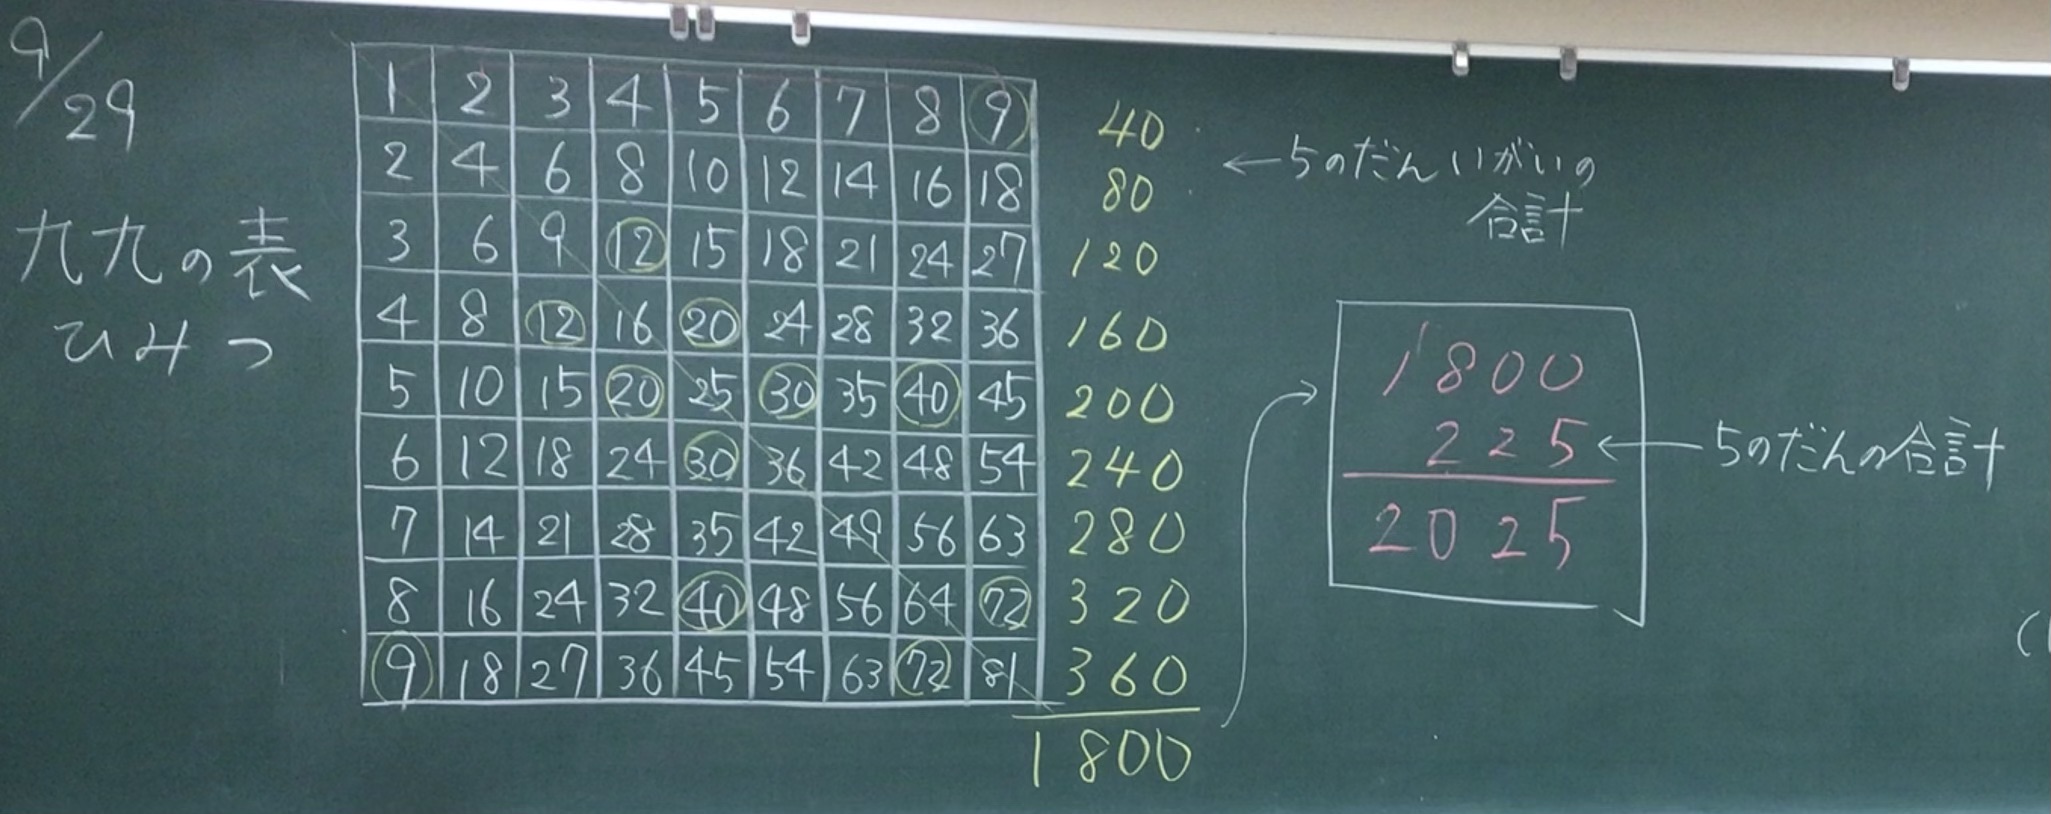 9/29
九九の表
ひみつ
1 2 3 4 5 6 7 8 9 40
2 4 6 8 10 12 14 16 18 80
3 6 9 12 15 18 21 24 27 120
4 8 12 16 20 24 28 32 36 160
5 10 15 20 25 30 35 40 45 200
6 12 18 24 30 36 42 48 54 240
7 14 21 28 35 42 49 56 63 280
8 16 24 32 40 48 56 64 72 320
9 18 27 36 45 54 63 72 81 360
1800
←5のだんいがいの
合計
1800
225 ←5のだんの合計
2025